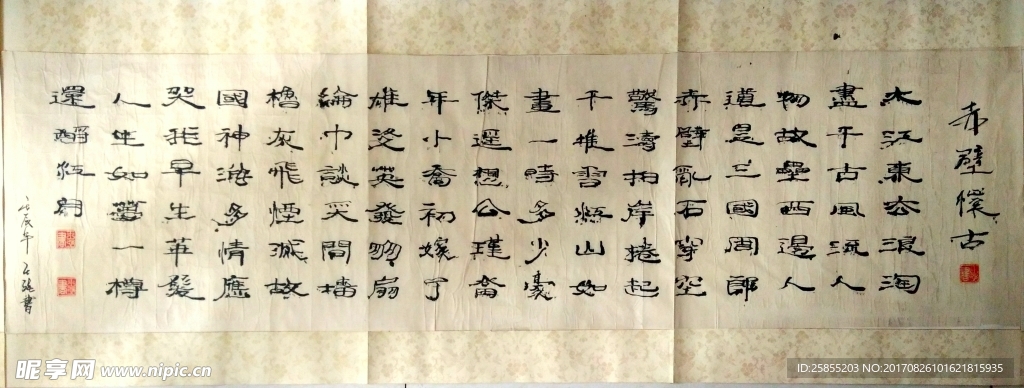 赤壁懷古
大江東去浪淘
盡千古風流人
物故壘西邊人
道是三國周郎
赤壁亂石穿空
驚濤拍岸捲起
千堆雪江山如
畫一時多少豪
傑遥想公瑾當
年小喬初嫁了
雄姿英發羽扇
綸巾談笑間檣
櫓灰飛煙滅故
國神游多情應
笑我早生華髮
人生如夢一樽
還酹江月
戊辰年 書
昵享网 www.nipic.cn
ID:25855203 NO:20170826101621815935